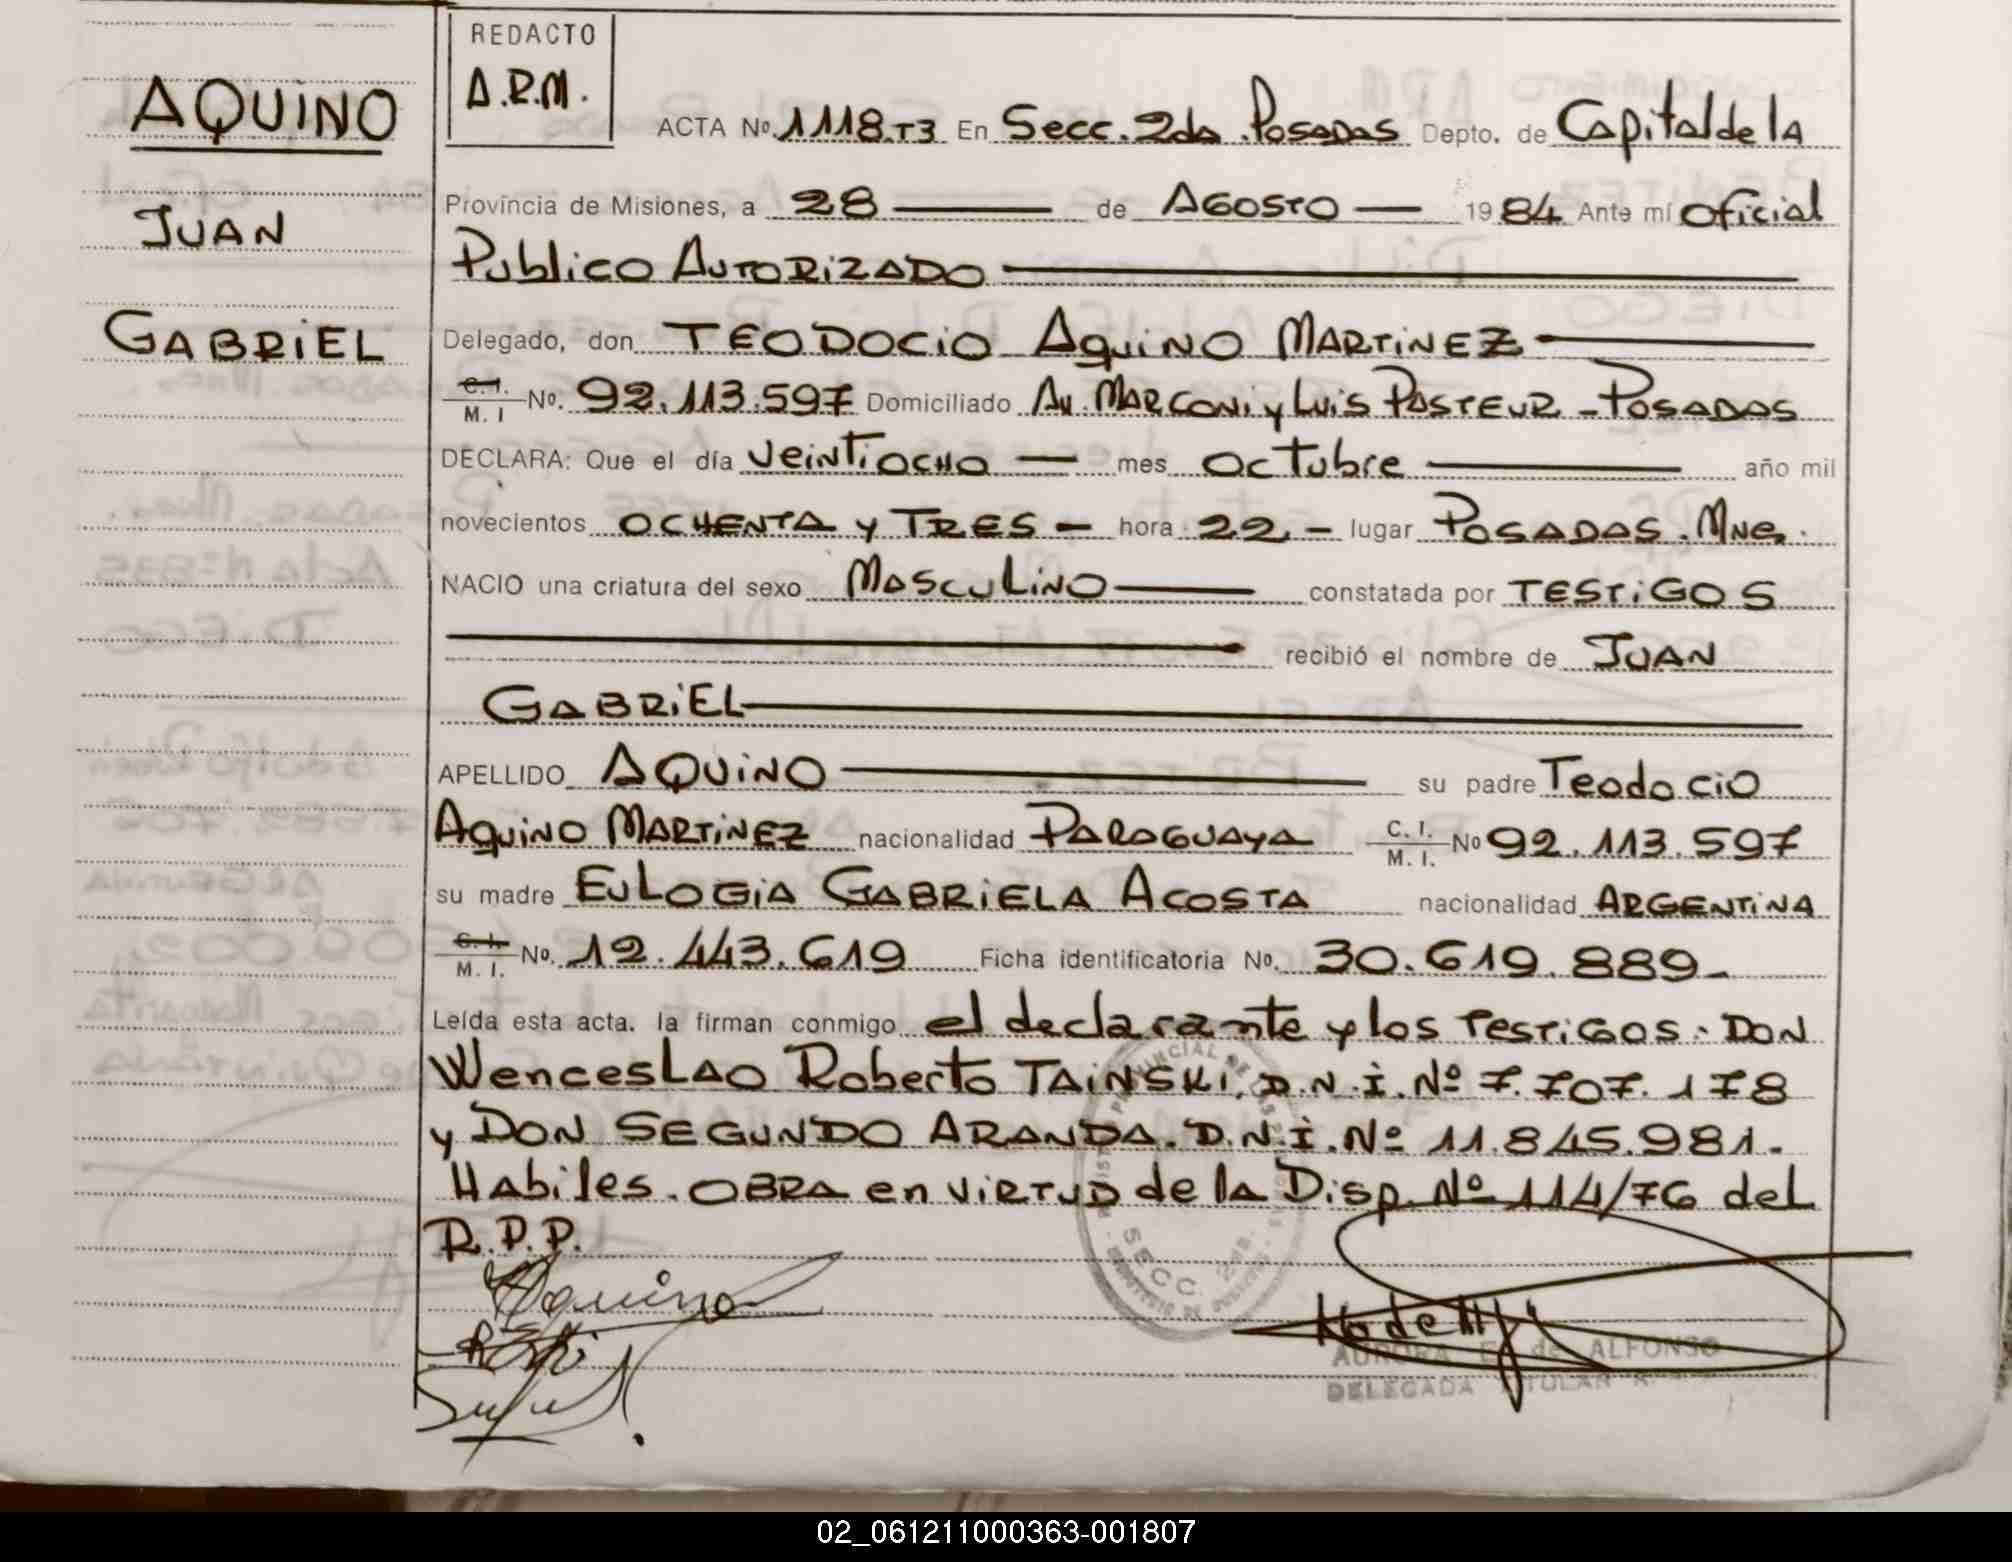 AQUINO
JUAN
GABRIEL
REDACTO
A.R.M.
ACTA No. 1118.T3 En Secc. 2da. Posadas Depto. de Capital de la
Provincia de Misiones, a 28 de Agosto 1984 Ante mí oficial
Publico Autorizado
Delegado, don TEODOCIO Aquino MARTINEZ
C.I. M. I No. 92.113.597 Domiciliado Av. MARCONI y Luis PASTEUR - POSADAS
DECLARA: Que el día veintiocho mes octubre año mil
novecientos OCHENTA y TRES - hora 22 - lugar POSADAS. Mnes.
NACIO una criatura del sexo MASCULINO constatada por TESTIGOS
recibió el nombre de JUAN
GABRIEL
APELLIDO AQUINO su padre Teodocio
Aquino MARTINEZ nacionalidad PARAGUAYA C. I. M. I. No 92.113.597
su madre EULOGIA GABRIELA ACOSTA nacionalidad ARGENTINA
C. I. M. I. No. 12.443.619 Ficha identificatoria No. 30.619.889-
Leída esta acta. la firman conmigo el declarante y los TESTIGOS: DON
Wenceslao Roberto TAINSKI. D.N.I. Nº 7.707.178
y DON SEGUNDO ARANDA. D.N.I. Nº 11.845.981.
Habiles. OBRA en VIRTUD de la Disp. Nº 114/76 del
R.P.P.
Aquino
AURORA E. de ALFONSO
DELEGADA TITULAR
SECC. 2da.
02_061211000363-001807